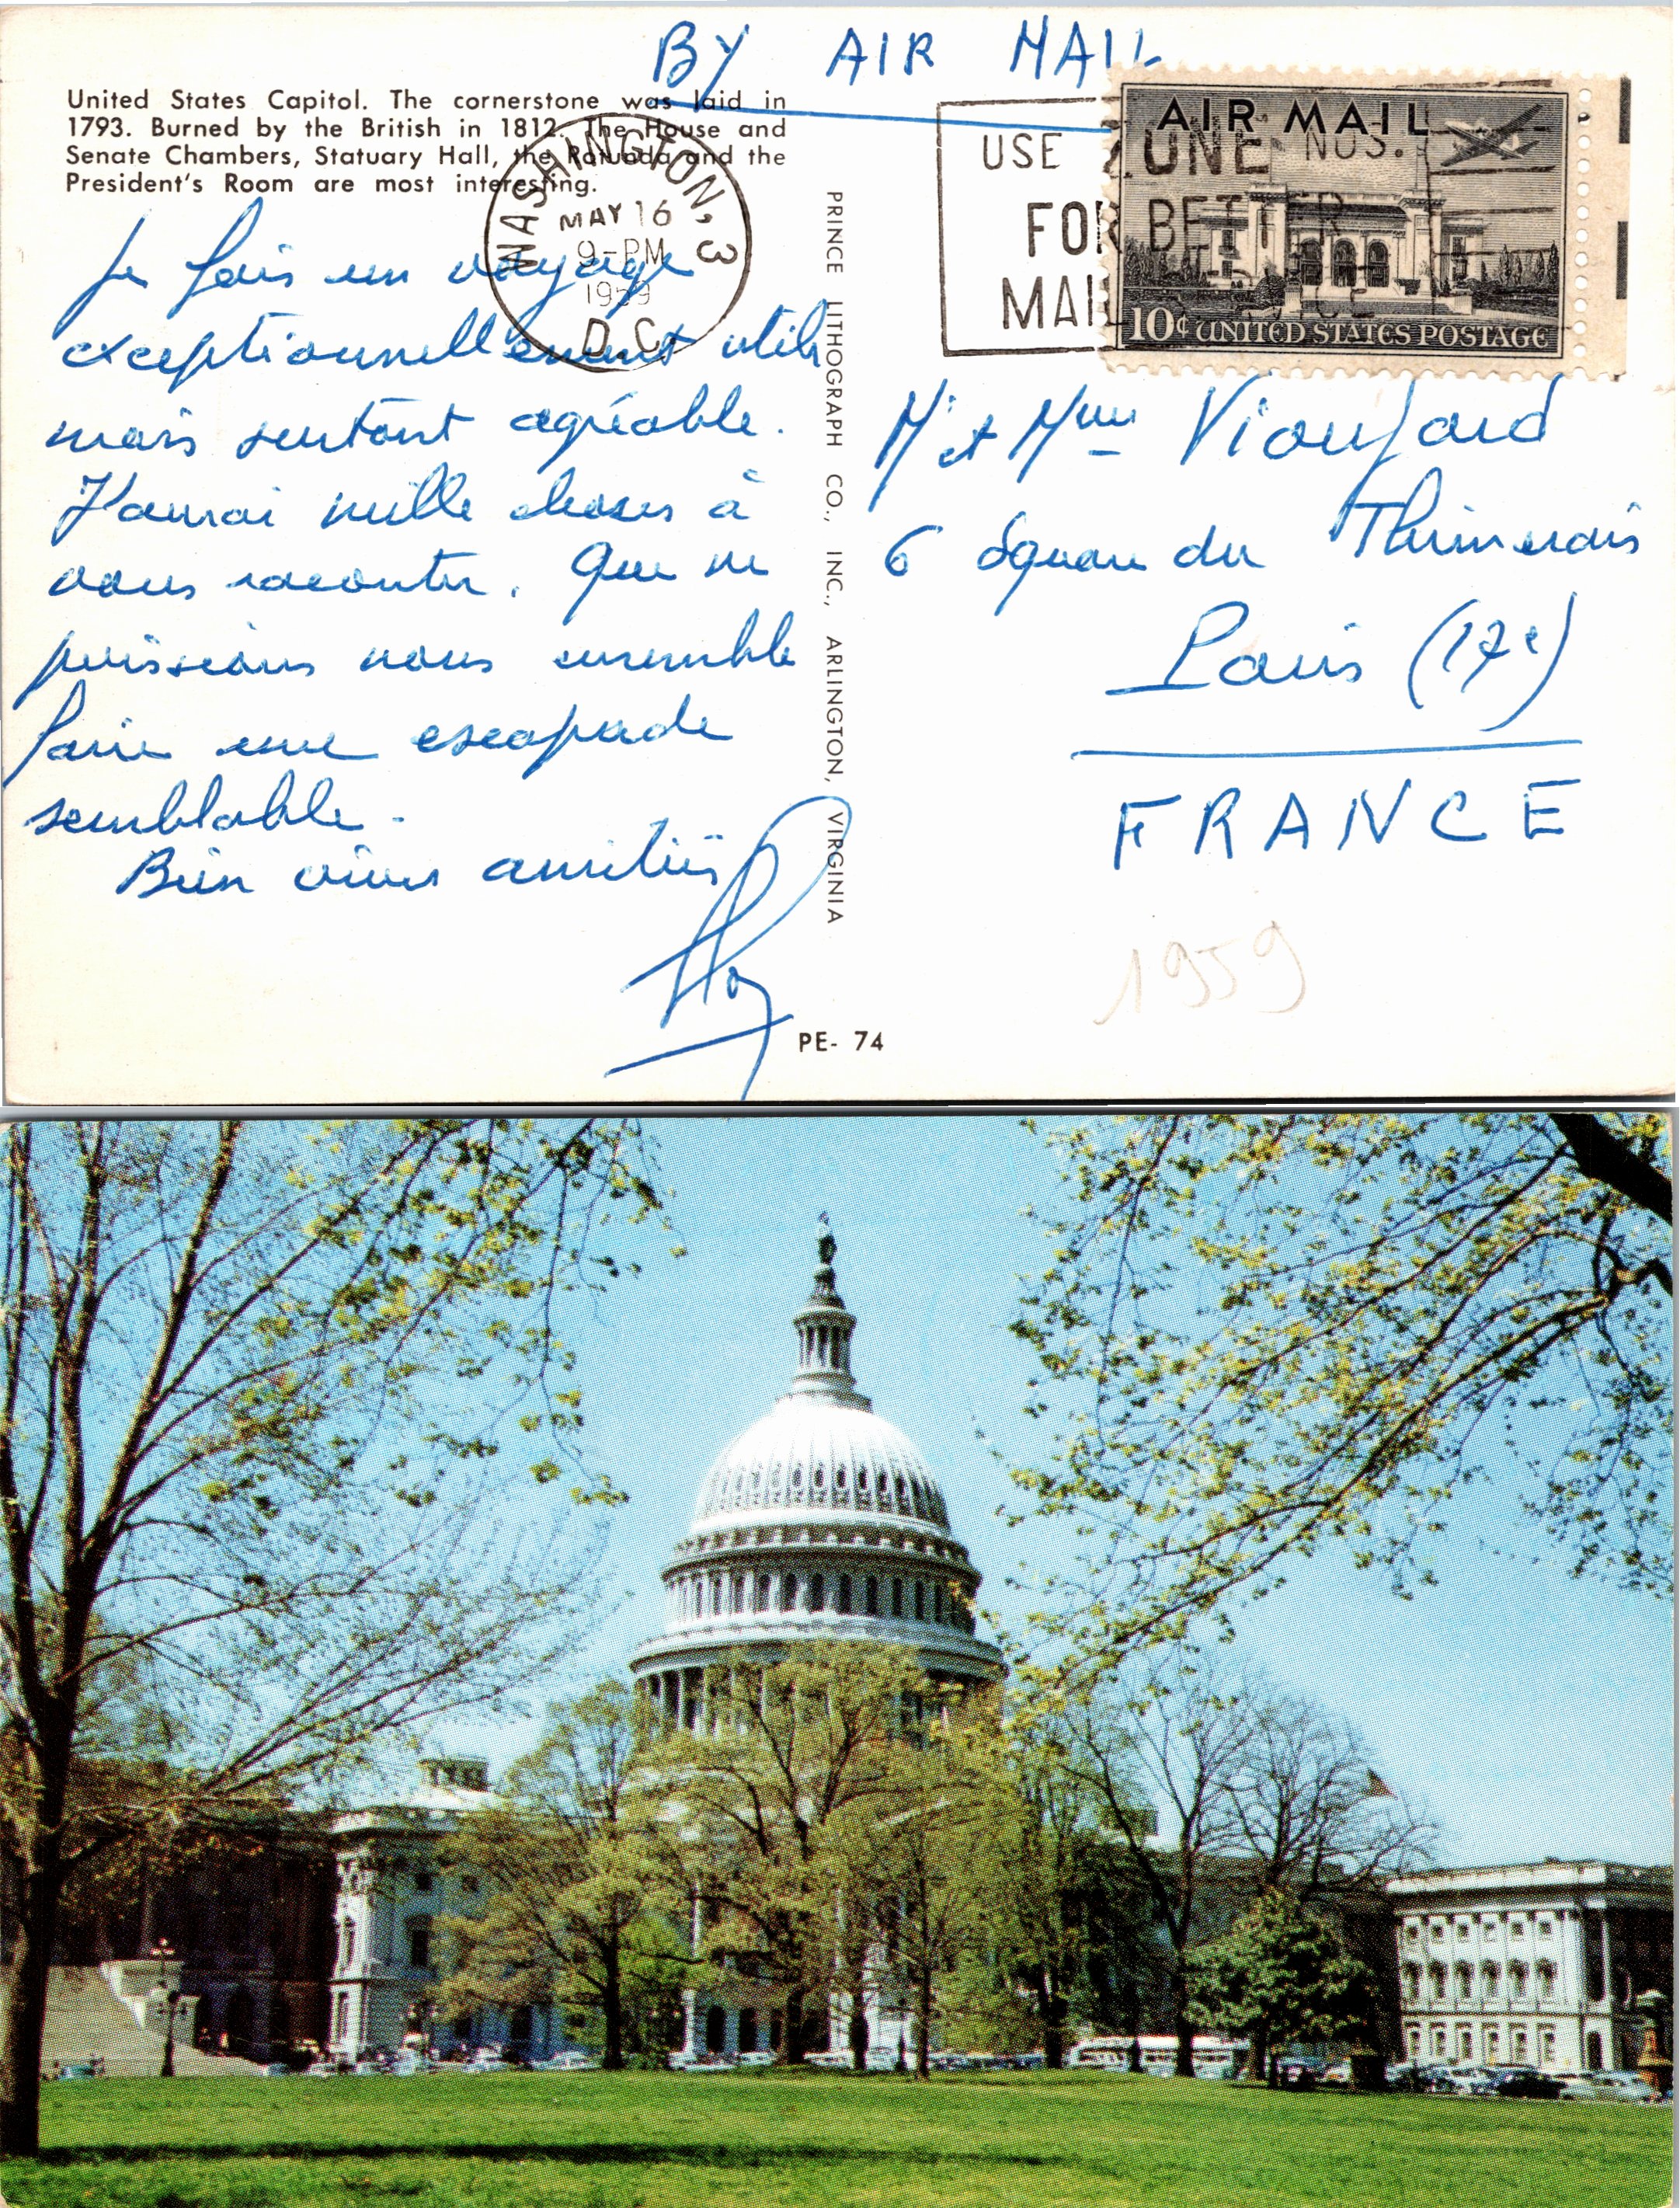 BY AIR MAIL
United States Capitol. The cornerstone was laid in
1793. Burned by the British in 1812. The House and
Senate Chambers, Statuary Hall, the Rotunda and the
President's Room are most interesting.
WASHINGTON, 3
MAY 16
9-PM
1959
D.C.
USE ZONE NOS.
FOR BETTER
MAIL SERVICE
AIR MAIL
10¢ UNITED STATES POSTAGE
Je fais un voyage
exceptionnellement utile
mais surtout agréable.
J'aurai mille choses à
vous raconter. Que ne
puissions nous ensemble
faire une escapade
semblable.
Bien vives amitiés
PRINCE LITHOGRAPH CO., INC., ARLINGTON, VIRGINIA
Mr et Mme
6 Square du Thimerais
Paris (17e)
FRANCE
1959
PE- 74